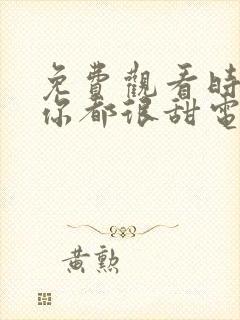 免費觀看時
你都很甜電
黃勲